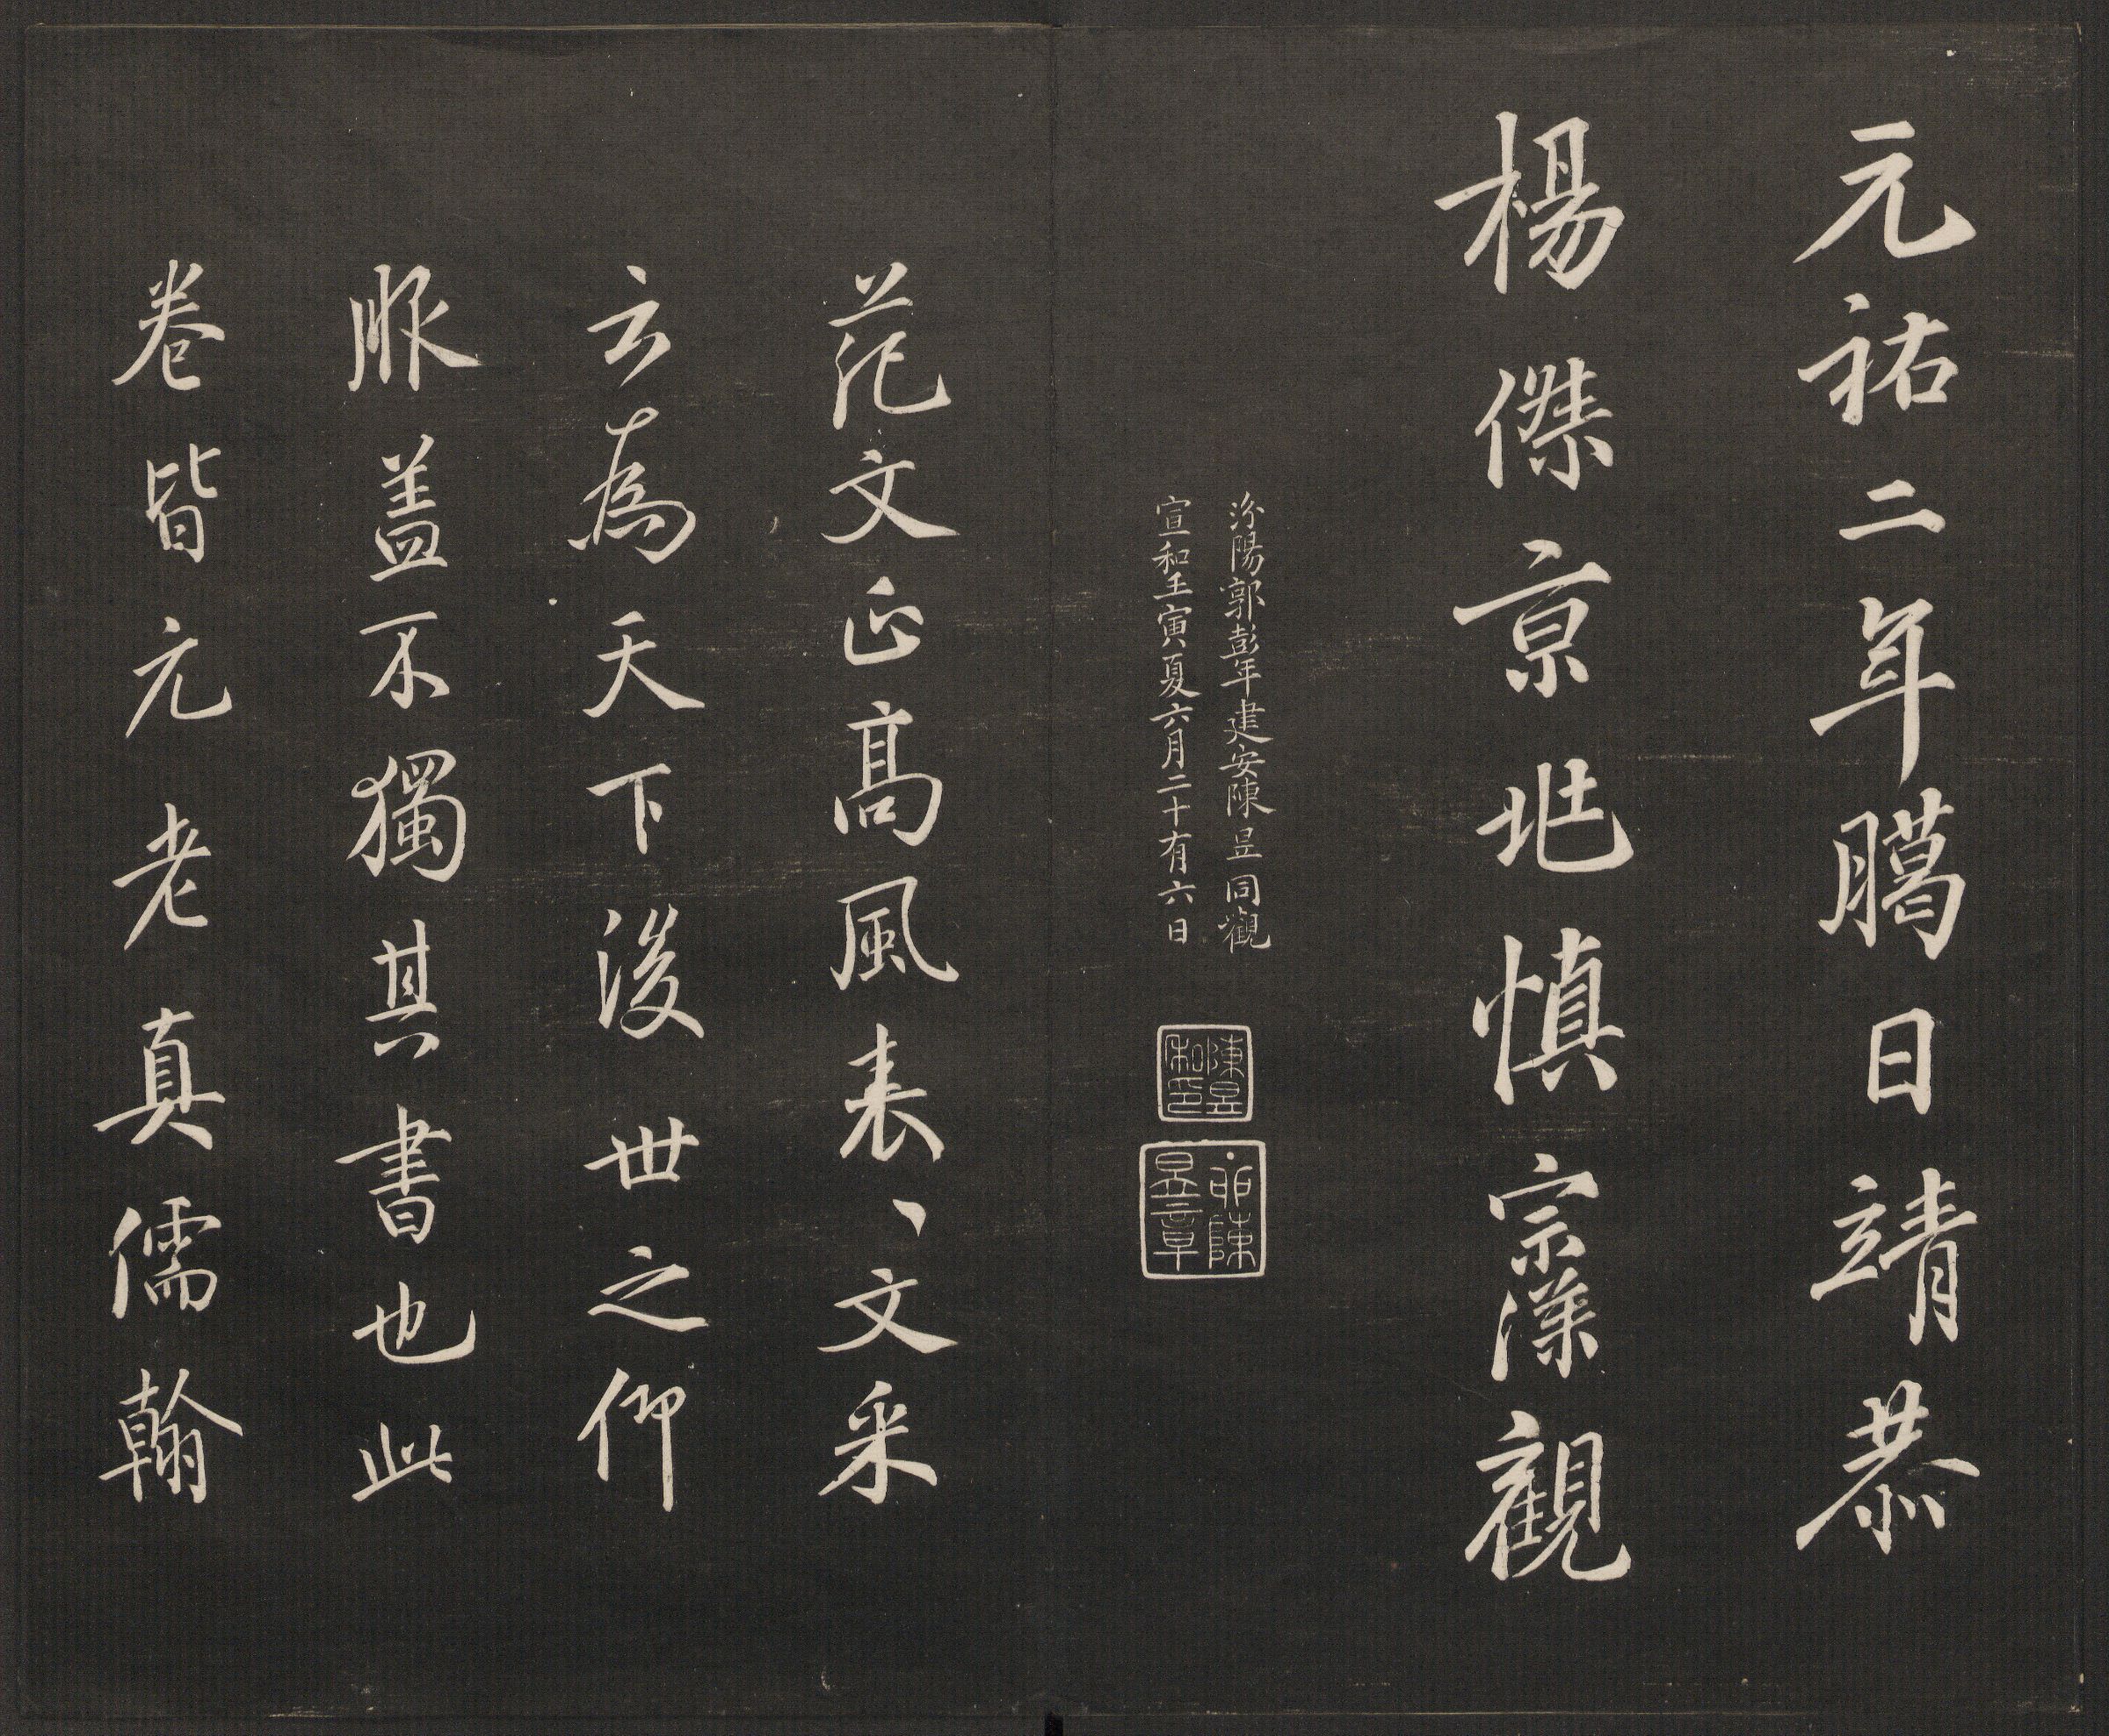 元祐二年臈日靖恭
楊傑京兆慎宗深觀
汾陽郭彭年建安陳昱同觀
宣和壬寅夏六月二十有六日
陳昱
陳
昱章
范文正高風表、文采
云為天下後世之仰
服蓋不獨其書也此
卷皆元老真儒翰